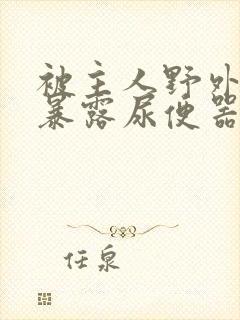 被主人野外
暴露尿便器
任泉